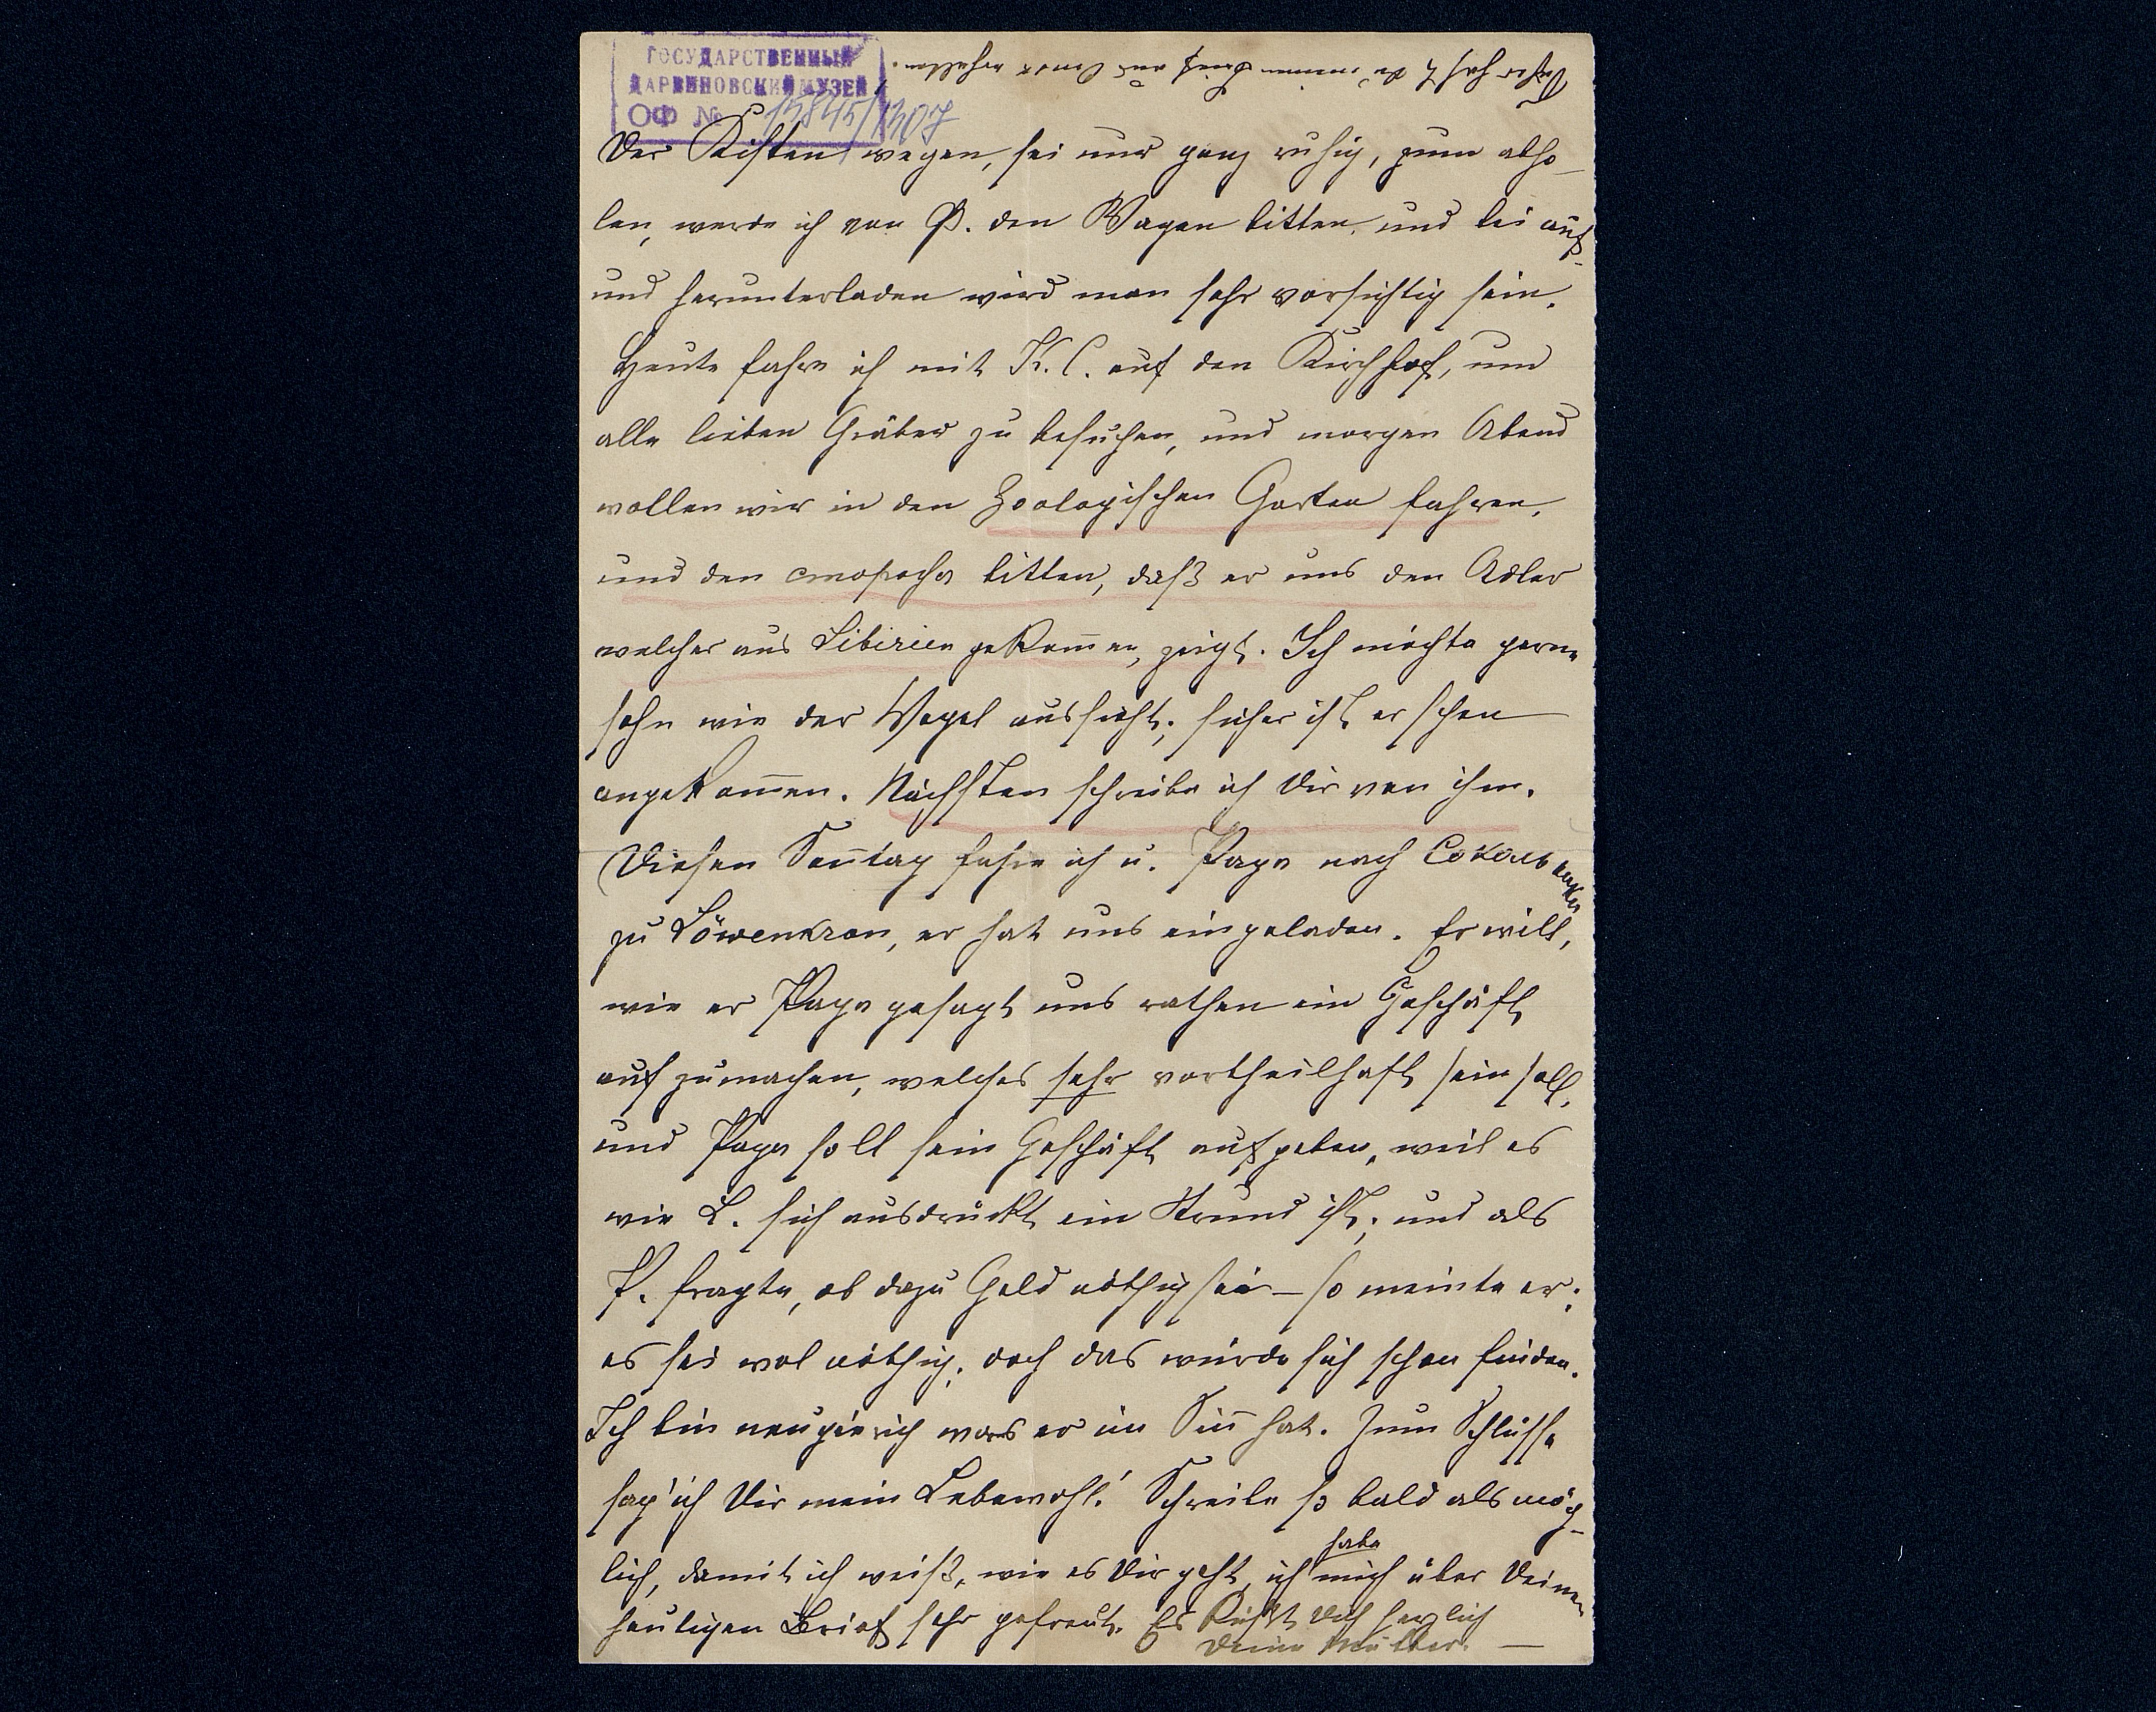 ГОСУДАРСТВЕННЫЙ
ДАРВИНОВСКИЙ МУЗЕЙ
ОФ № 15845/1307
Der Kisten wegen, sei nur ganz ruhig, zum abho-
len, werde ich von P. den Wagen bitten, und bei auf-
und herunterladen wird man sehr vorsichtig sein.
Heute fahre ich mit K. C. auf den Kirchhof, um
alle lieben Gräber zu besuchen, und morgen Abend
wollen wir in den Zoologischen Garten fahren,
und den сторожа bitten, daß er uns den Adler
welcher aus Sibirien gekom̅en, zeigt. Ich möchte gerne
sehn wie der Vogel aussieht; sicher ist er schon
angekom̅en. Nächsten schreibe ich Dir von ihm.
Diesen Son̅tag fahre ich u. Papa nach Сокольники
zu Löwenkron, er hat uns eingeladen. Er will,
wie er Papa gesagt uns rathen ein Geschäft
aufzumachen, welches sehr vortheilhaft sein soll,
und Papa soll sein Geschäft aufgeben, weil es
wie L. sich ausdrückt ein ist; und als
P. fragte, ob dazu Geld nöthig sei – so meinte er:
es sei wol nöthig, doch das würde sich schon finden.
Ich bin neugierich was er im Sin̅ hat. Zum Schlusse
sag' ich Dir mein Lebewohl! Schreibe so bald als mög-
lich, damit ich weiß, wie es Dir geht, ich habe mich über Deinen
heutigen Brief sehr gefreut. Es küßt Dich herzlich
Deine Mutter. —
Papa hat meinen Brief aus erhalten.